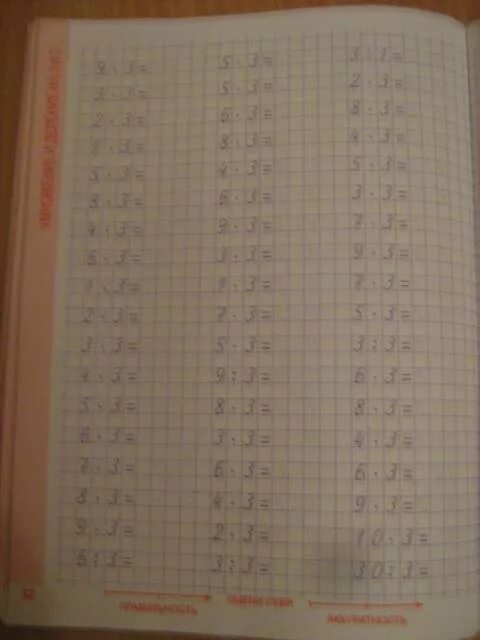 УМНОЖЕНИЕ И ДЕЛЕНИЕ НА
9 · 3 =
3 · 3 =
2 · 3 =
7 · 3 =
5 · 3 =
8 · 3 =
4 · 3 =
6 · 3 =
1 · 3 =
2 · 3 =
3 · 3 =
4 · 3 =
5 · 3 =
6 · 3 =
7 · 3 =
8 · 3 =
9 · 3 =
6 : 3 =
5 · 3 =
5 · 3 =
6 · 3 =
8 · 3 =
4 · 3 =
6 · 3 =
9 · 3 =
3 · 3 =
1 · 3 =
7 · 3 =
5 · 3 =
9 : 3 =
8 · 3 =
3 · 3 =
6 · 3 =
4 · 3 =
2 · 3 =
3 : 3 =
2 · 3 =
8 · 3 =
4 · 3 =
5 · 3 =
3 · 3 =
7 · 3 =
9 · 3 =
7 · 3 =
5 · 3 =
3 : 3 =
6 · 3 =
8 · 3 =
4 · 3 =
6 · 3 =
9 · 3 =
10 · 3 =
30 : 3 =
ПРАВИЛЬНОСТЬ
ОЦЕНИ СЕБЯ
АККУРАТНОСТЬ